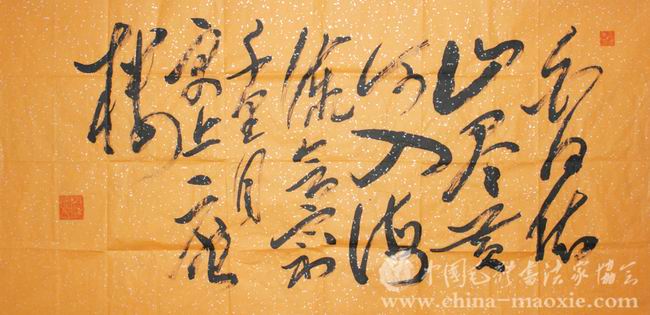 白日依
山尽黄
河入海
流欲穷
千里目
更上一层
楼
中國毛体書法家協会
www.china-maoxie.com